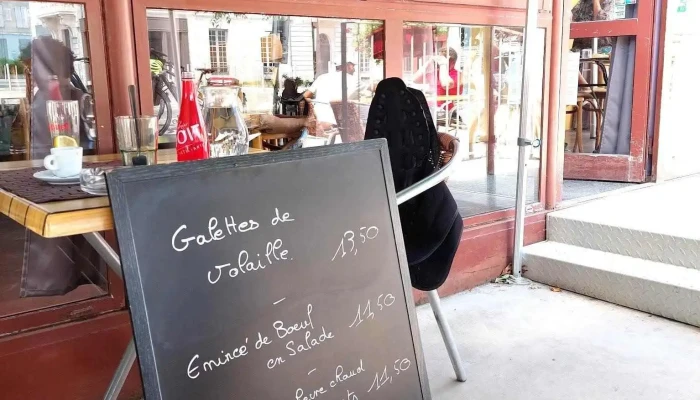 Galettes de
Volaille. 13,50
-
Emincé de Boeuf
en Salade 11,50
-
chaud 11,50